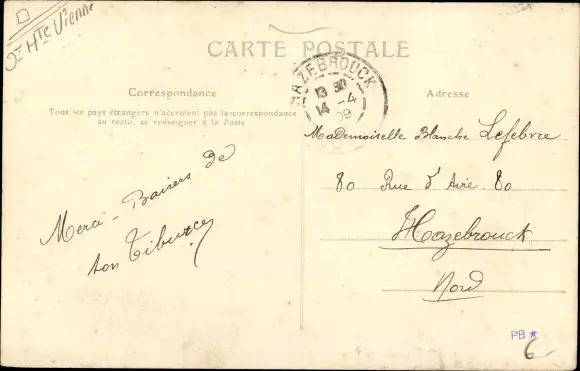 Hte Vienne
CARTE POSTALE
HAZEBROUCK
13 30
14 -4
09
Correspondance
Adresse
Tous les pays étrangers n'acceptent pas la correspondance
au recto, se renseigner à la Poste
Mademoiselle Blanche Lefebvre
80 Rue d'Aire 80
Hazebrouck
Nord
Merci - Baisers de
ton Tiburce
PB ★
6